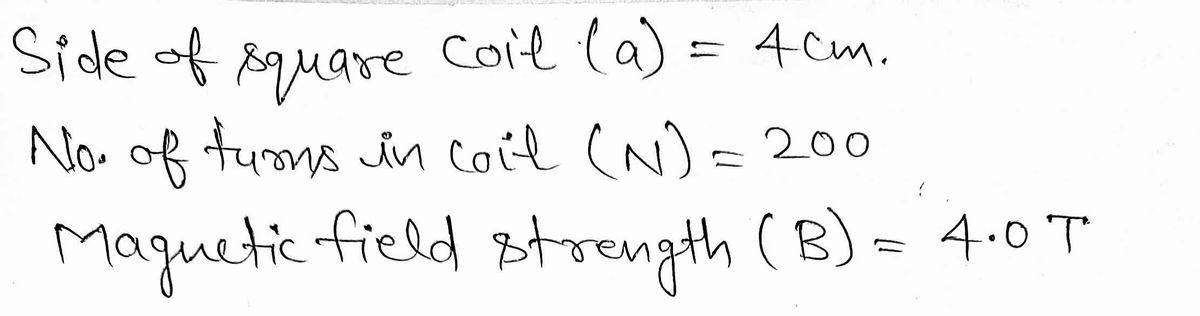 Side of square coil (a) = 4cm.
No. of turns in coil (N) = 200
Magnetic field strength (B) = 4.0 T